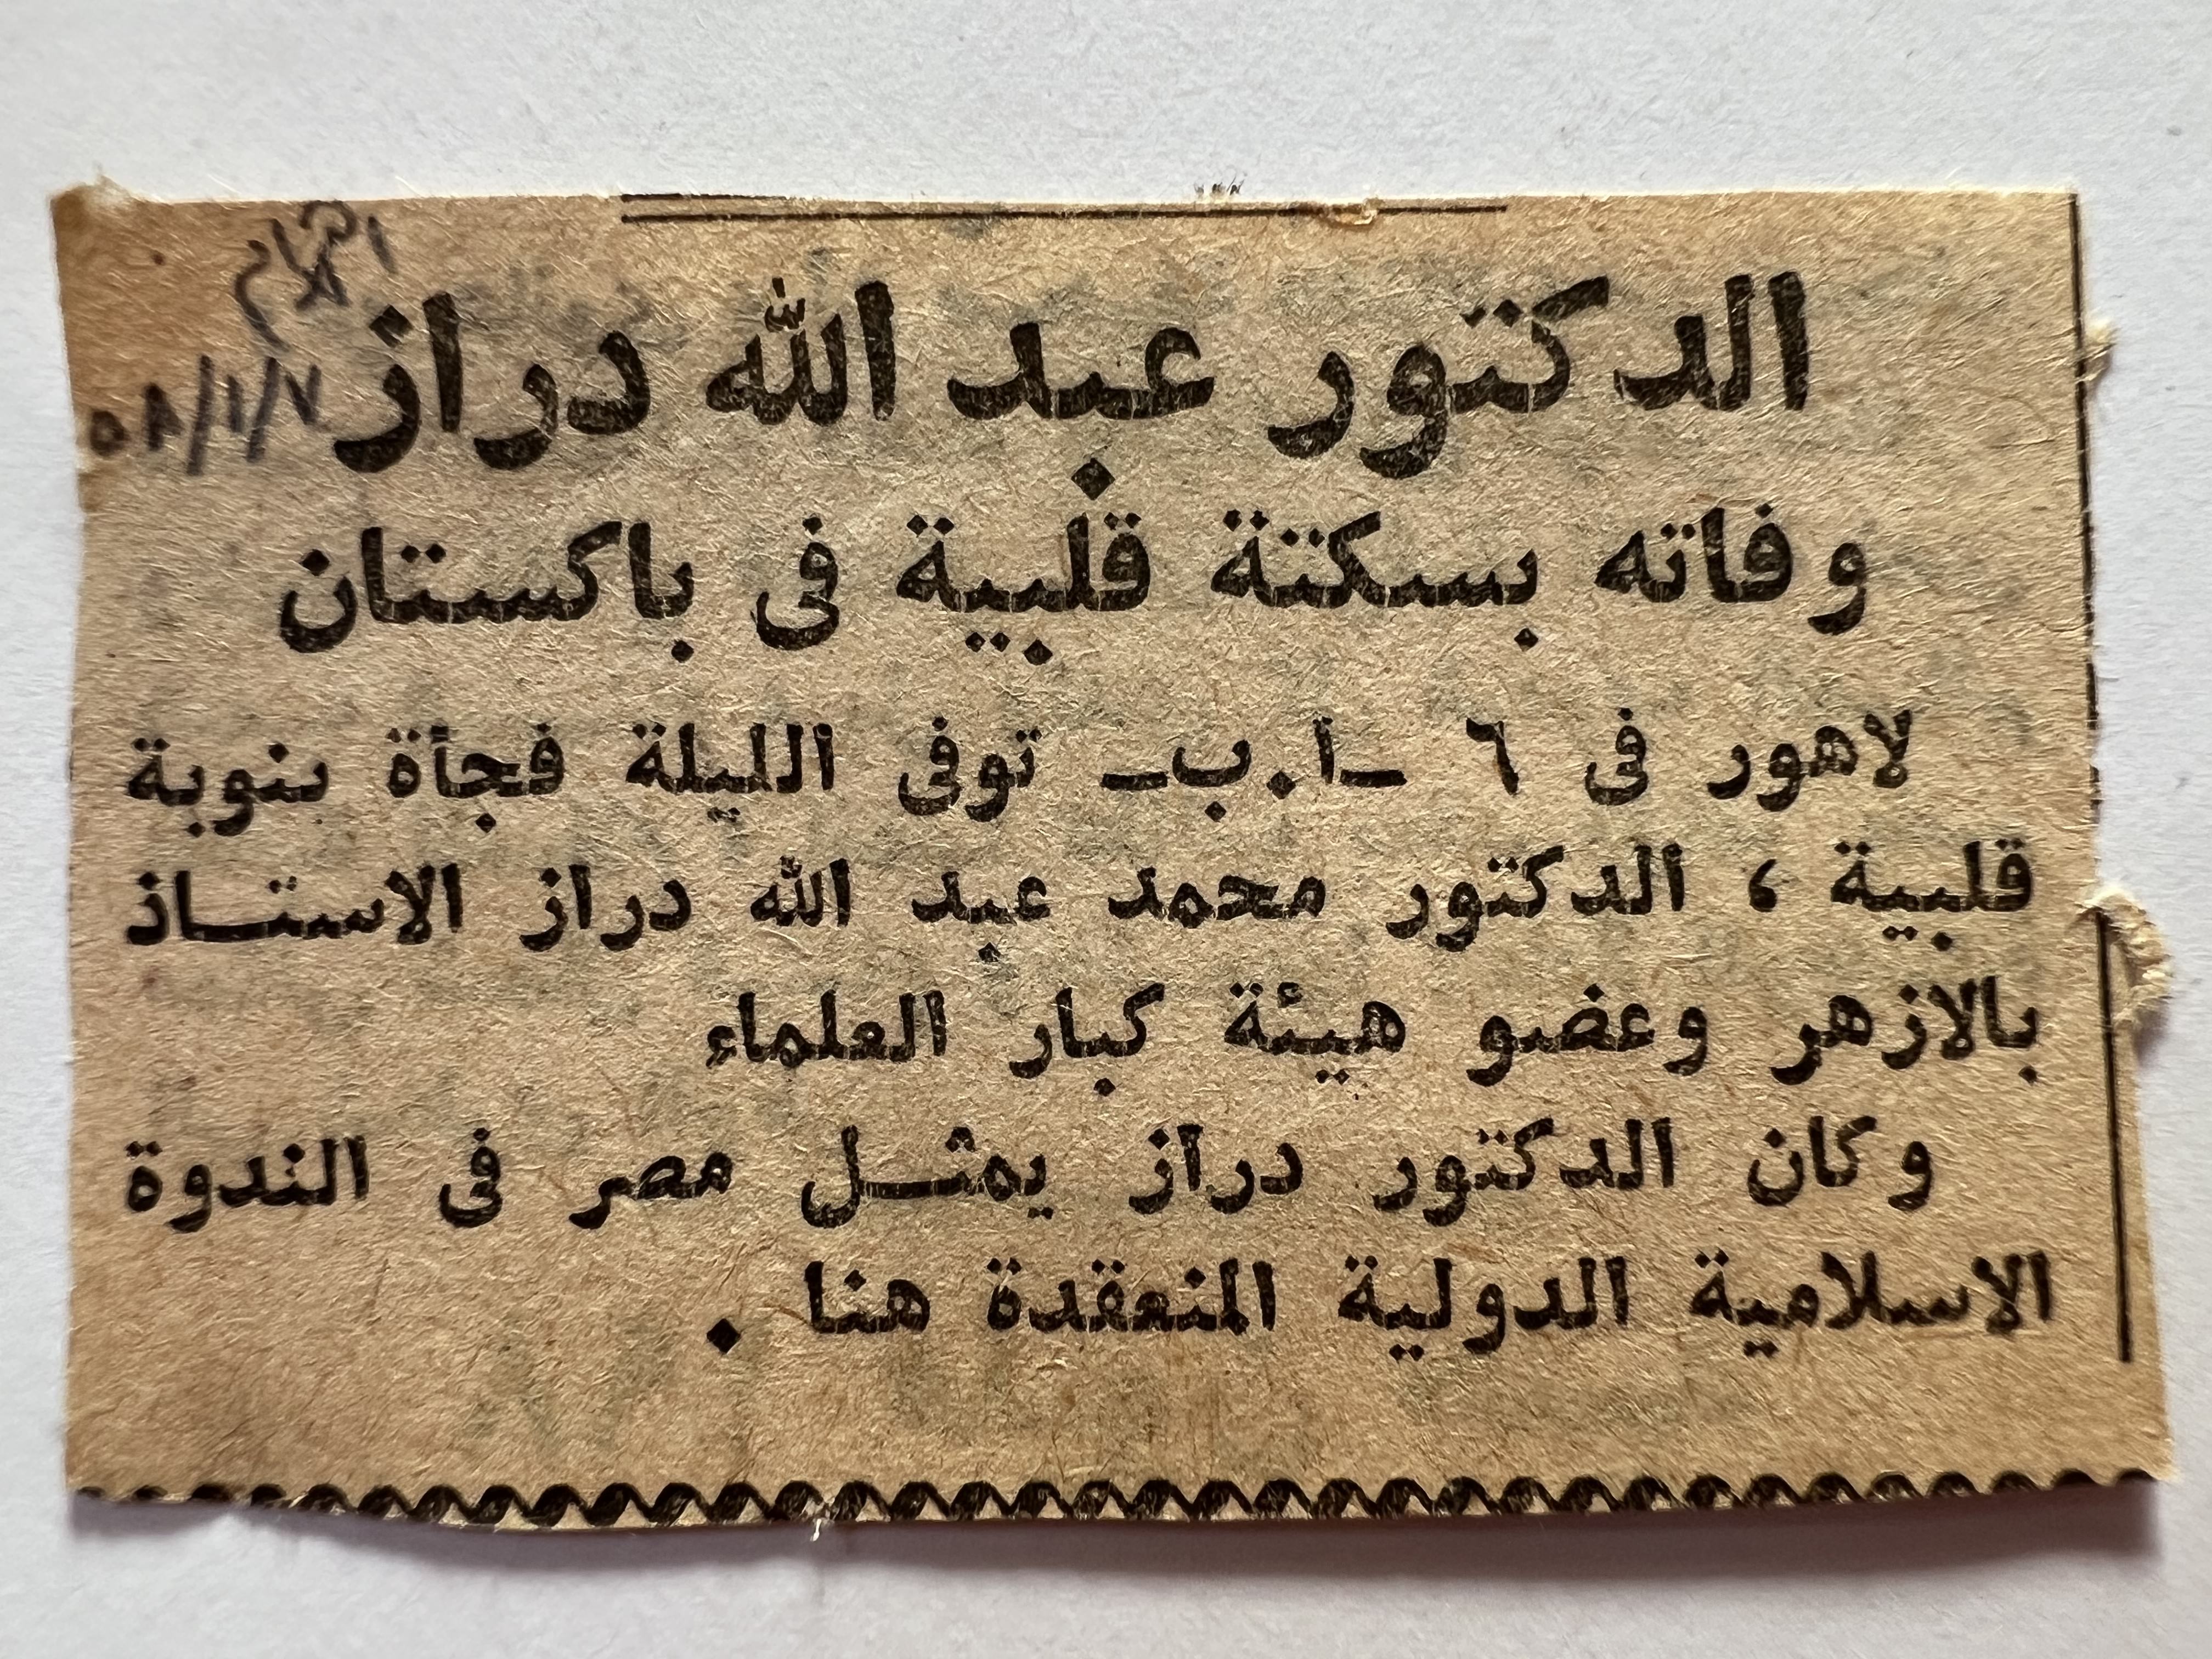 الاهرام
٥٨/١/٧
الدكتور عبد الله دراز
وفاته بسكتة قلبية فى باكستان
لاهور فى ٦ ـ ا.ب ـ توفى الليلة فجأة بنوبة
قلبية ، الدكتور محمد عبد الله دراز الاستـاذ
بالازهر وعضو هيئة كبار العلماء
وكان الدكتور دراز يمثـل مصر فى الندوة
الاسلامية الدولية المنعقدة هنا .